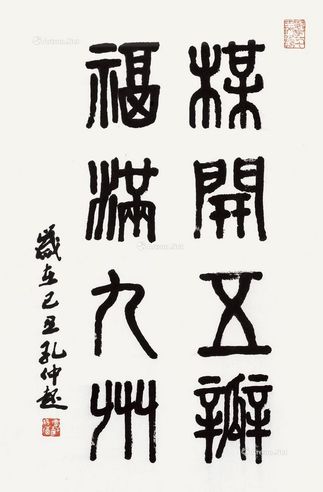 楳開五瓣
福滿九州
歲在己丑孔仲起